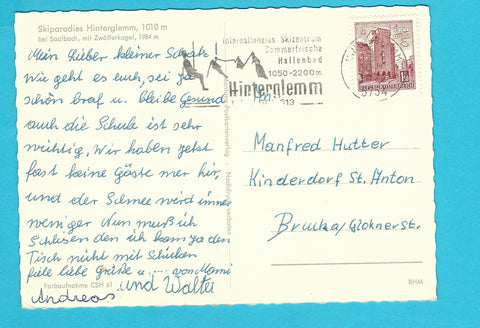 Skiparadies Hinterglemm, 1010 m
bei Saalbach, mit Zwölferkogel, 1984 m
Mein lieber kleiner Schatz!
Wie geht es euch, sei ja
schön braf u. bleibe Gesund
auch die Schule ist sehr
wichtig, Wir haben jetzt
fast keine Gäste mer hir,
und der Schnee wird immer
weniger Nun muß ich
Schlisen den ich kam ja den
Tisch nicht mit Schicken
file liebe grüße u. von Mami
und Walter
Andreas
Farbaufnahme CSH 61
Internationales Skizentrum
Sommerfrische
Hallenbad
1050-2200m
Hinterglemm
5754
REPUBLIK ÖSTERREICH
Manfred Hutter
Kinderdorf St. Anton
Bruck a/ Gloknerstr.
RHM